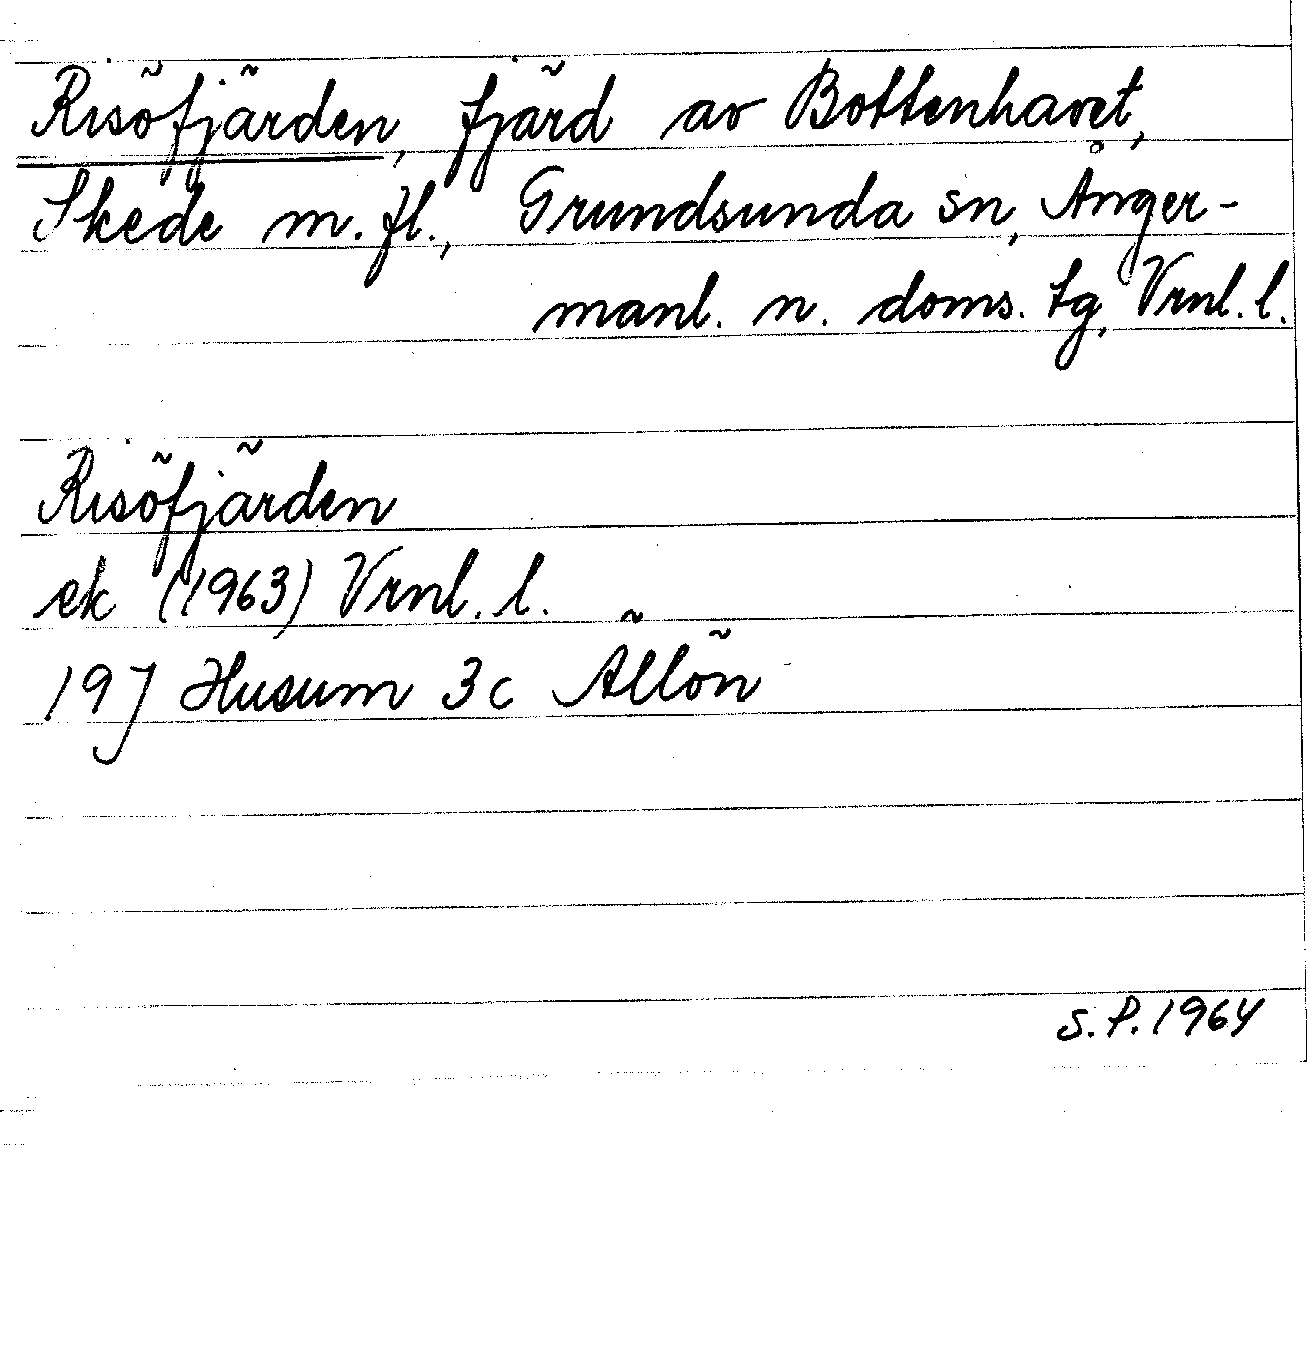 Risöfjärden, fjärd av Bottenhavet,
Skede m. fl., Grundsunda sn, Ånger-
manl. n. doms. tg, Vrnl. l.
Risöfjärden
ek (1963) Vrnl. l.
19J Husum 3c Ällön
S.P. 1964